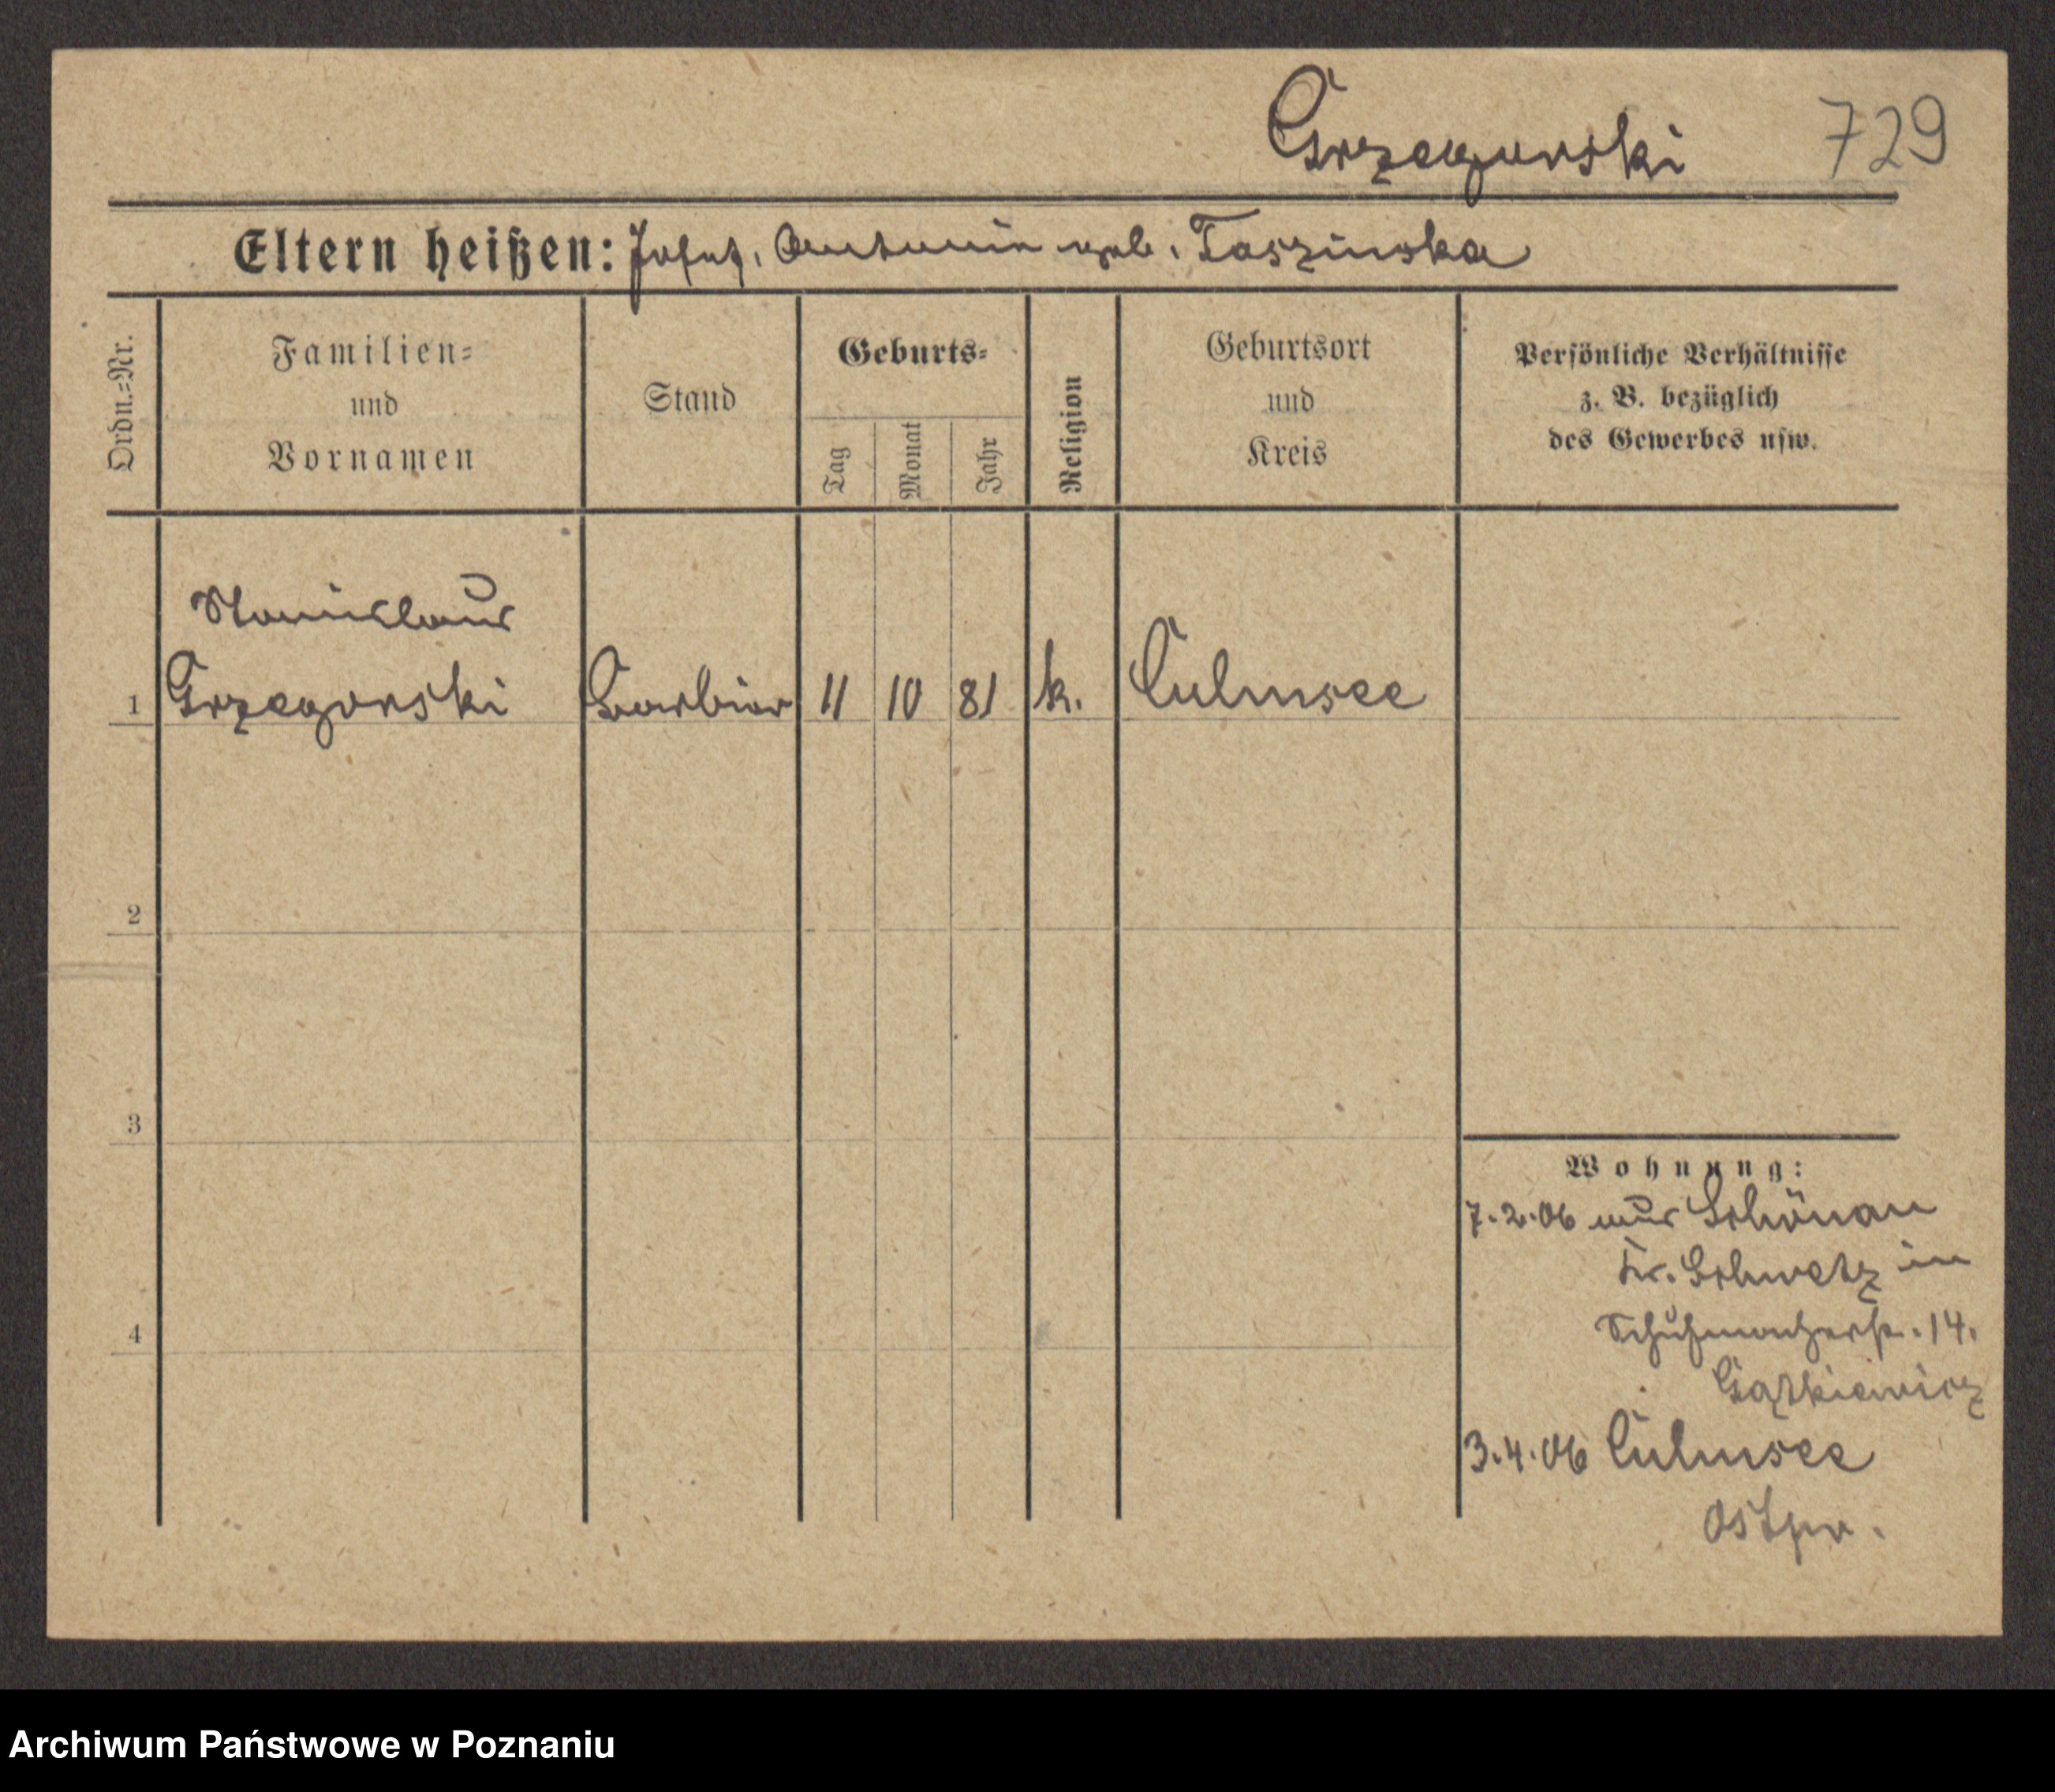 Grzegorski 729
Eltern heißen: Josef, Antonie geb. Taszinska
Ordn.=Nr.
Familien=
und
Vornamen
Stand
Geburts=
Tag
Monat
Jahr
Religion
Geburtsort
und
Kreis
Persönliche Verhältnisse
z. B. bezüglich
des Gewerbes usw.
Stanislaus
1 Grzegorski Barbier 11 10 81 k. Culmsee
2
3
4
Wohnung:
7.2.06 aus Schönau
Kr. Schwetz in
Schuhmacherstr. 14.
3.4.06 Culmsee
Ostpr.
Archiwum Państwowe w Poznaniu